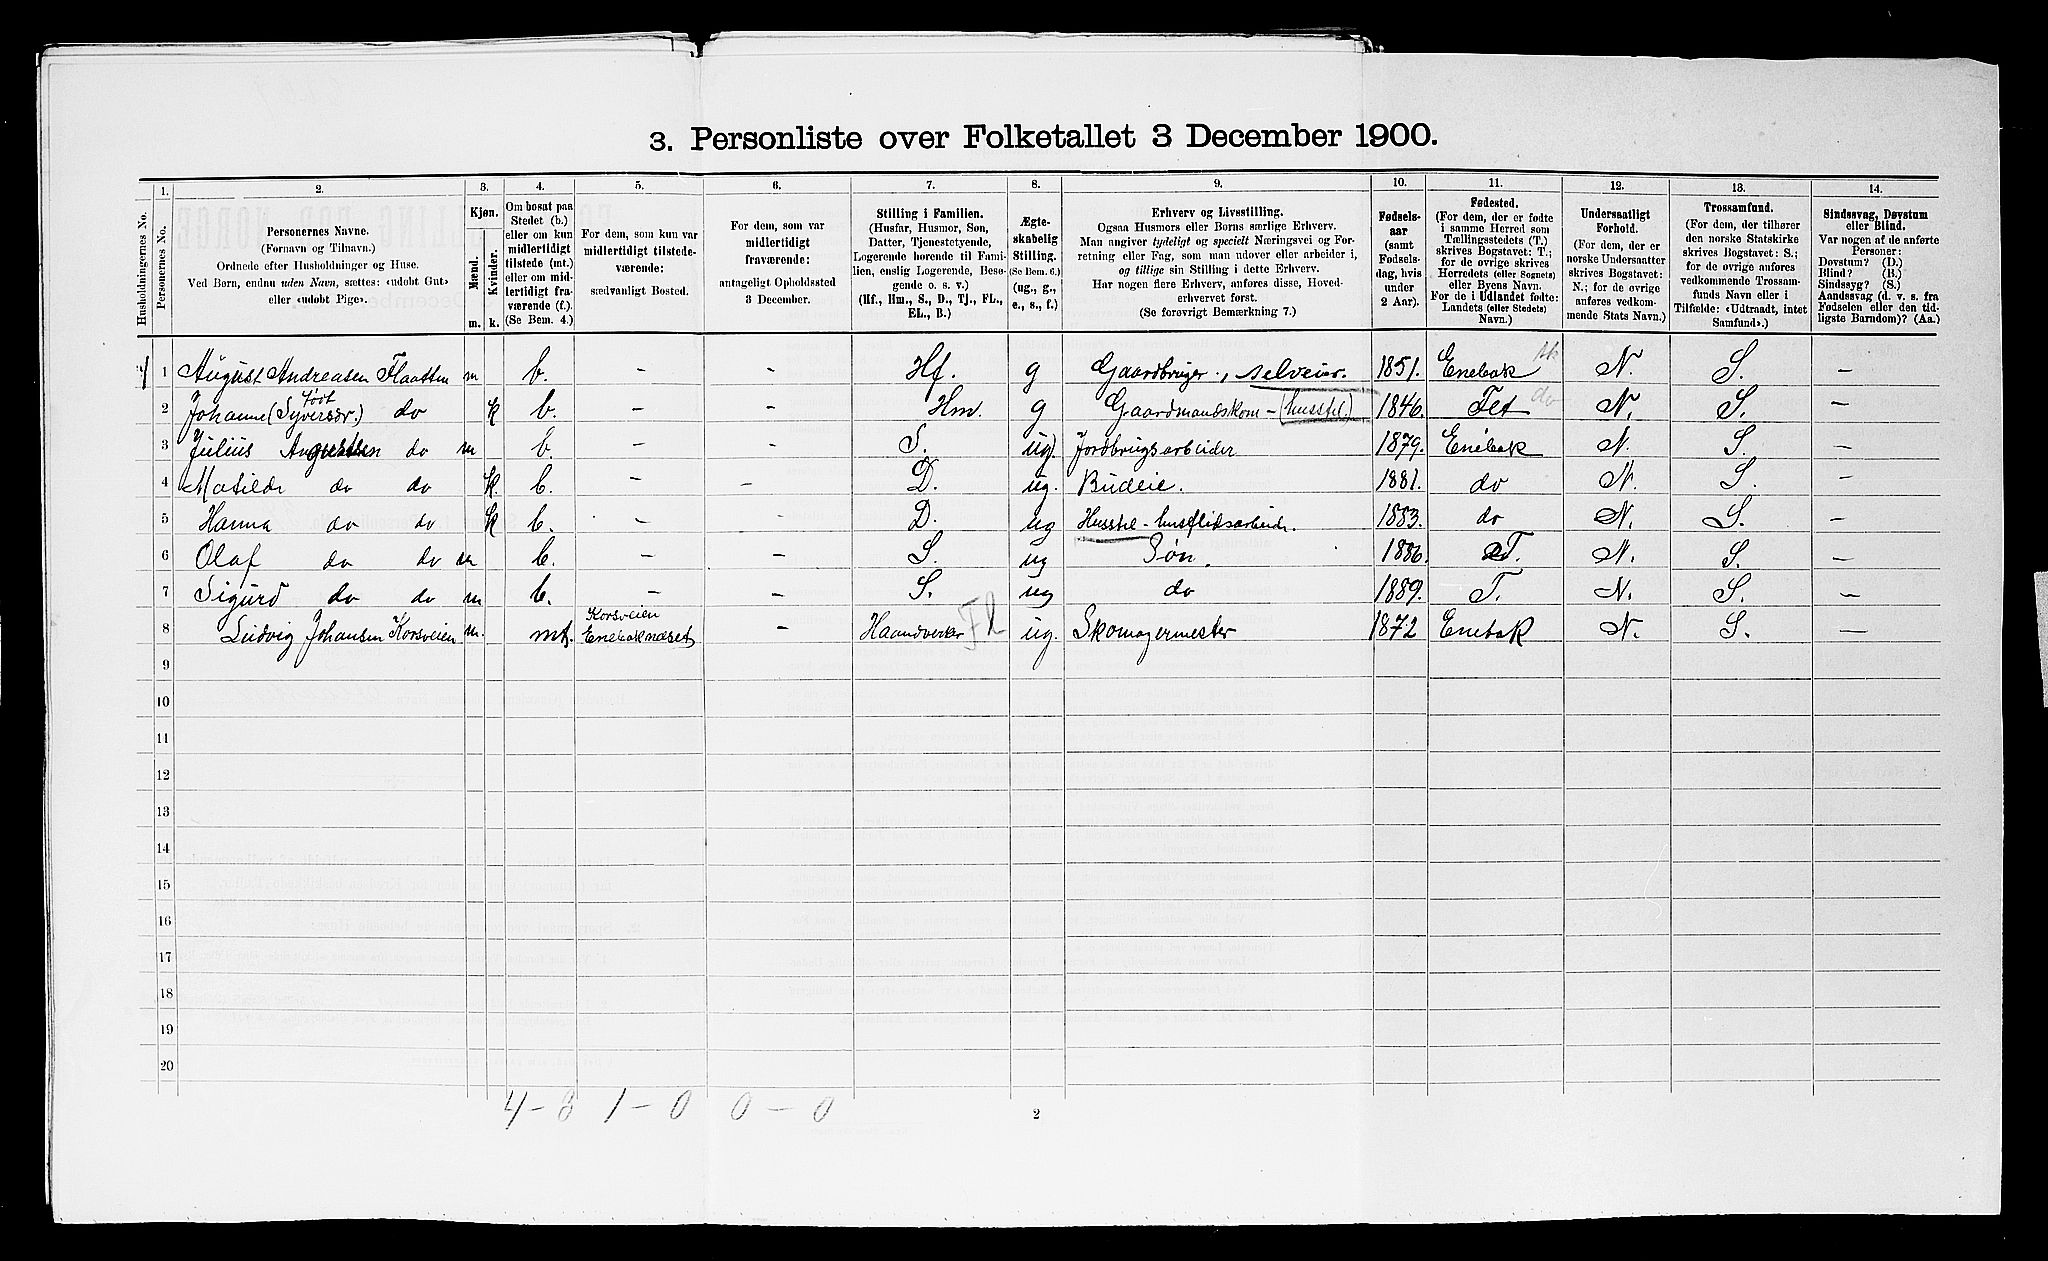 3. Personliste over Folketallet 3 December 1900.
1. 2. 3. 4. 5. 6. 7. 8. 9. 10. 11. 12. 13. 14.
Husholdningernes No.
Personernes No.
Personernes Navne.
(Fornavn og Tilnavn.)
Ordnede efter Husholdninger og Huse.
Ved Børn, endnu uden Navn, sættes: «udøbt Gut»
eller «udøbt Pige».
Kjøn.
Mænd.
Kvinder.
m. k.
Om bosat paa
Stedet (b.)
eller om kun
midlertidigt
tilstede (mt.)
eller om mid-
lertidigt fra-
værende (f.).
(Se Bem. 4.)
For dem, som kun var
midlertidigt tilstede-
værende:
sædvanligt Bosted.
For dem, som var
midlertidigt
fraværende:
antageligt Opholdssted
3 December.
Stilling i Familien.
(Husfar, Husmor, Søn,
Datter, Tjenestetyende,
Logerende hørende til Fami-
lien, enslig Logerende, Besø-
gende o. s. v.)
(Hf., Hm., S., D., Tj., FL.,
EL., B.)
Ægte-
skabelig
Stilling.
(Se Bem. 6.)
(ug., g.,
e., s., f.)
Erhverv og Livsstilling.
Ogsaa Husmors eller Børns særlige Erhverv.
Man angiver tydeligt og specielt Næringsvei og For-
retning eller Fag, som man udøver eller arbeider i,
og tillige sin Stilling i dette Erhverv.
Har nogen flere Erhverv, anføres disse, Hoved-
erhvervet først.
(Se forøvrigt Bemærkning 7.)
Fødsels-
aar
(samt
Fødsels-
dag, hvis
under
2 Aar).
Fødested.
(For dem, der er fødte
i samme Herred som
Tællingsstedets (T.)
skrives Bogstavet: T.;
for de øvrige skrives
Herredets (eller Sognets)
eller Byens Navn.
For de i Udlandet fødte:
Landets (eller Stedets)
Navn.)
Undersaatligt
Forhold.
(For dem, der er
norske Undersaatter
skrives Bogstavet:
N.; for de øvrige
anføres vedkom-
mende Stats Navn.)
Trossamfund.
(For dem, der tilhører
den norske Statskirke
skrives Bogstavet: S.;
for de øvrige anføres
vedkommende Trossam-
funds Navn eller i
Tilfælde: «Udtraadt, intet
Samfund».)
Sindssvag, Døvstum
eller Blind.
Var nogen af de anførte
Personer:
Døvstum? (D.)
Blind? (B.)
Sindssyg? (S.)
Aandssvag (d. v. s. fra
Fødselen eller den tid-
ligste Barndom)? (Aa.)
1 1 August Andreasen Flaatten m b. - - Hf. g Gaardbruger, selveier. 1851. Enebak N. S. -
2 Johanne (født Syversdr.) do k b. - - Hm. g Gaardmandskone - (husstel.) 1846. Fet do N. S. -
3 Julius Augustsen do m b. - - S. ug. Jordbrugsarbeider 1879. Enebak N. S. -
4 Matilde do do k. b. - - D. ug. Budeie. 1881. do N. S. -
5 Hanna do do k b. - - D. ug Husstel - husflidsarbeide. 1883. do N. S. -
6 Olaf do do m b. - - S. ug Søn. 1886. T. N. S. -
7 Sigurd do do m b. - - S. ug do 1889. T. N. S. -
8 Ludvig Johansen Korsveien m. mt. Korsveien Enebaknæset - Haandverker FL ug. Skomagermester 1872 Enebak N. S. -
9
10
11
12
13
14
15
16
17
18
19
20
4 - 3 1 - 0 0 - 0
2